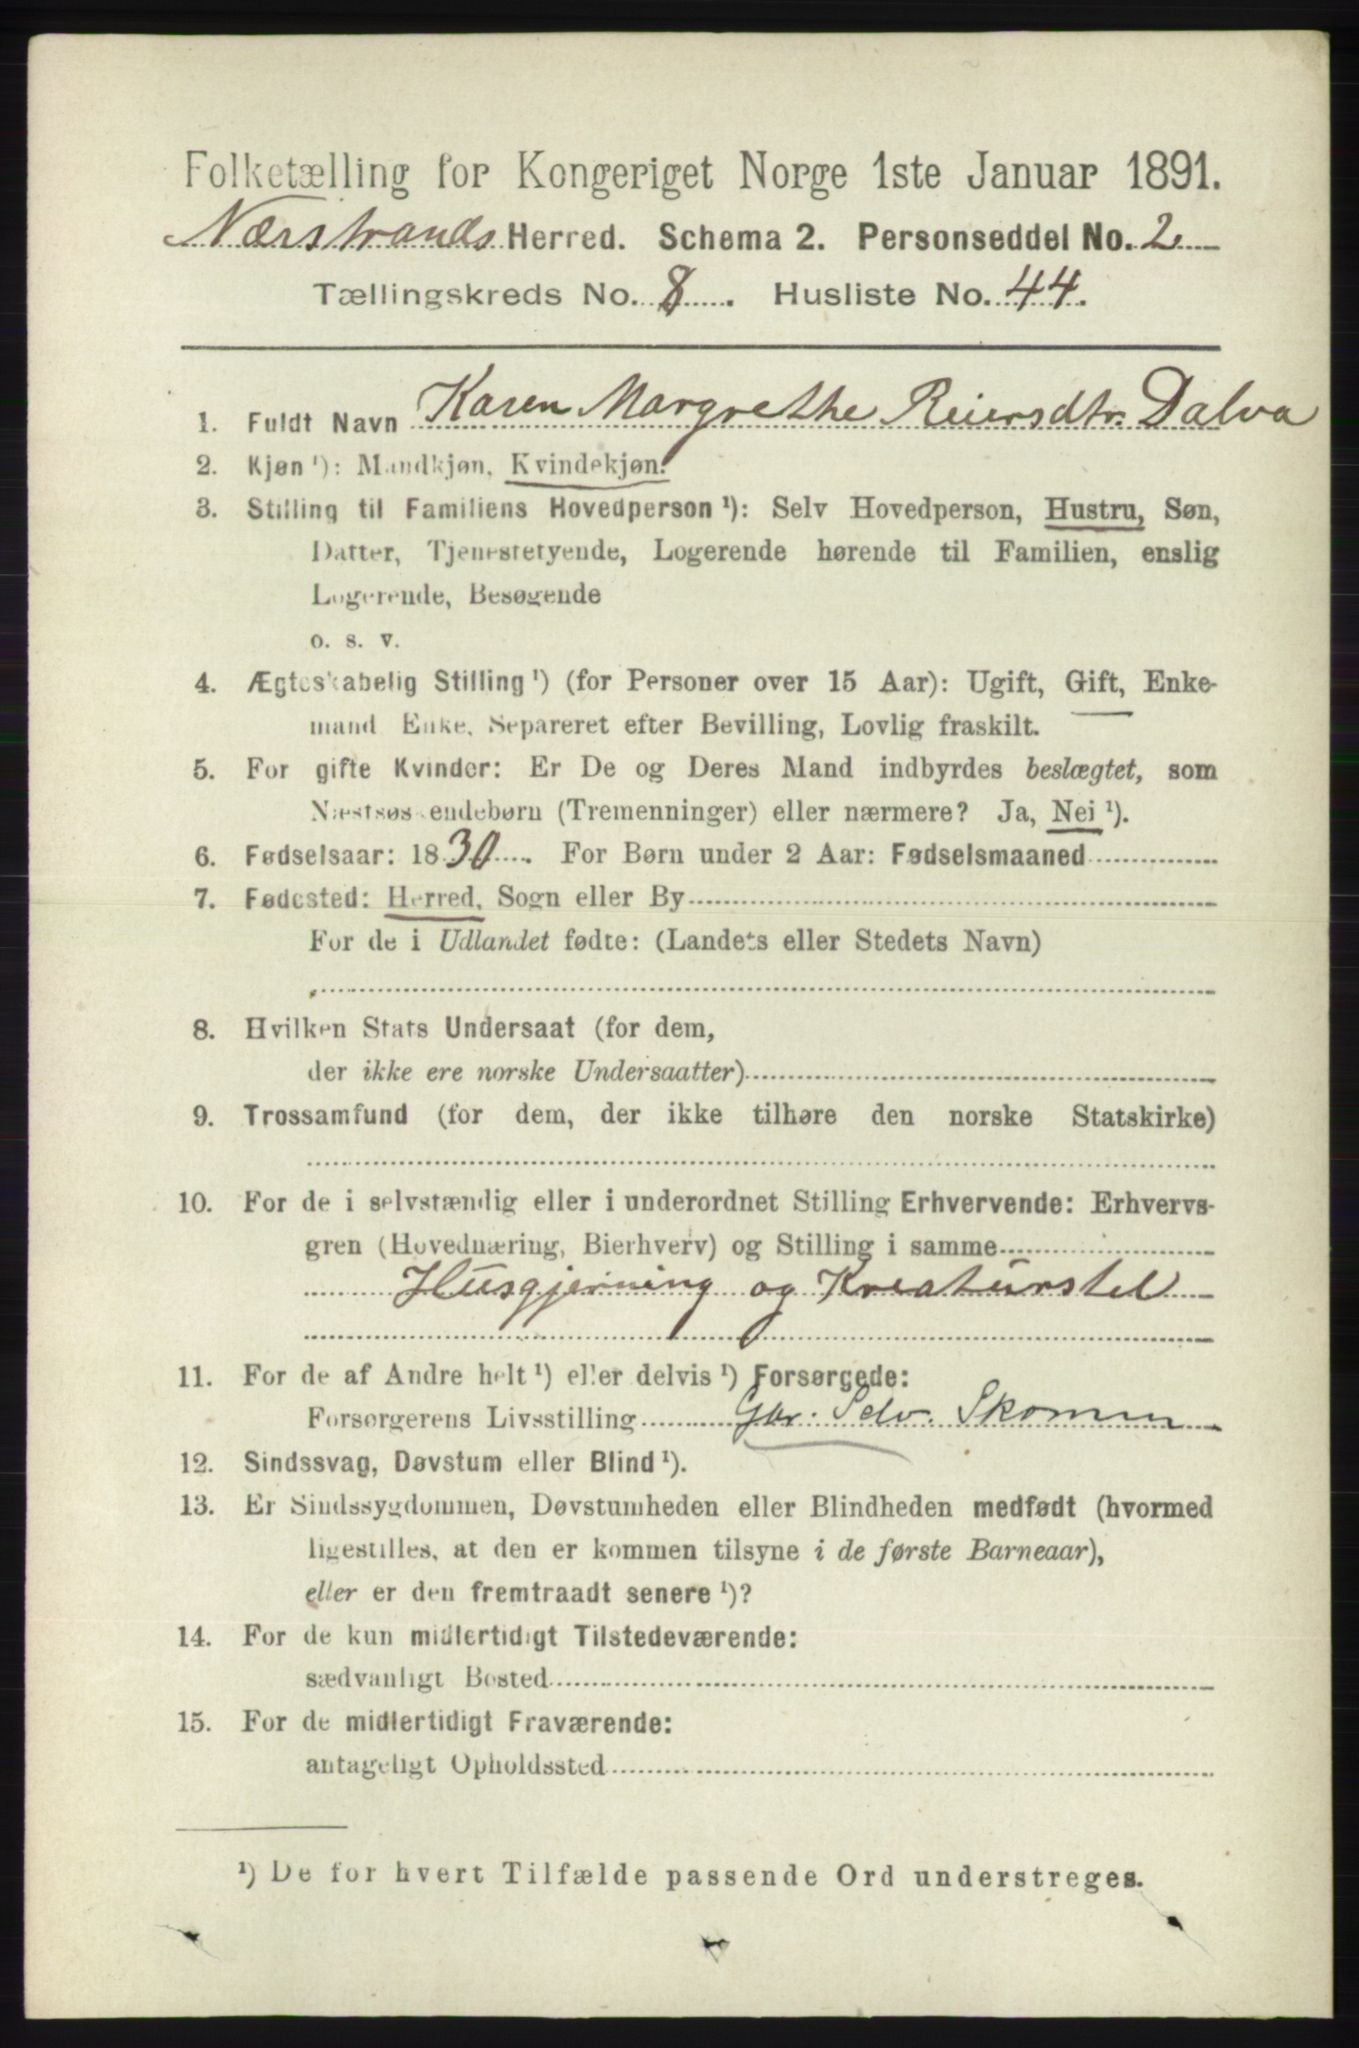 Folketælling for Kongeriget Norge 1ste Januar 1891.
Nærstrands Herred. Schema 2. Personseddel No. 2
Tællingskreds No. 8. Husliste No. 44.
1. Fuldt Navn Karen Margrethe Reiersdtr. Dalva
2. Kjøn ¹): Mandkjøn, Kvindekjøn.
3. Stilling til Familiens Hovedperson ¹): Selv Hovedperson, Hustru, Søn,
Datter, Tjenestetyende, Logerende hørende til Familien, enslig
Logerende, Besøgende
o. s. v.
4. Ægteskabelig Stilling ¹) (for Personer over 15 Aar): Ugift, Gift, Enke-
mand Enke, Separeret efter Bevilling, Lovlig fraskilt.
5. For gifte Kvinder: Er De og Deres Mand indbyrdes beslægtet, som
Næstsøskendebørn (Tremenninger) eller nærmere? Ja, Nei ¹).
6. Fødselsaar: 1830. For Børn under 2 Aar: Fødselsmaaned
7. Fødested: Herred, Sogn eller By
For de i Udlandet fødte: (Landets eller Stedets Navn)
8. Hvilken Stats Undersaat (for dem,
der ikke ere norske Undersaatter)
9. Trossamfund (for dem, der ikke tilhøre den norske Statskirke)
10. For de i selvstændig eller i underordnet Stilling Erhvervende: Erhvervs-
gren (Hovednæring, Bierhverv) og Stilling i samme
Husgjerning og Kreaturstel
11. For de af Andre helt ¹) eller delvis ¹) Forsørgede:
Forsørgerens Livsstilling Gbr. Selv.
12. Sindssvag, Døvstum eller Blind ¹).
13. Er Sindssygdommen, Døvstumheden eller Blindheden medfødt (hvormed
ligestilles, at den er kommen tilsyne i de første Barneaar),
eller er den fremtraadt senere ¹)?
14. For de kun midlertidigt Tilstedeværende:
sædvanligt Bosted
15. For de midlertidigt Fraværende:
antageligt Opholdssted
¹) De for hvert Tilfælde passende Ord understreges.